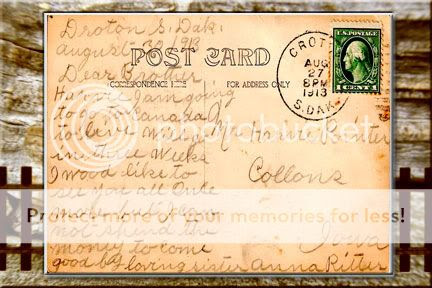 Droton S. Dak.
August 30 1913
POST CARD
CORRESPONDENCE HERE
FOR ADDRESS ONLY
CROT
AUG
27
8PM
1913
S. DAK.
U.S. POSTAGE
1 CENT 1
Dear Brother
I am going
to go to Canada
to live
in three Weeks
I would like to
see you all Once
not spend the
money to come
good by loving sister Anna Ritter
Mr
Collons
Iowa
photobucket
Protect more of your memories for less!